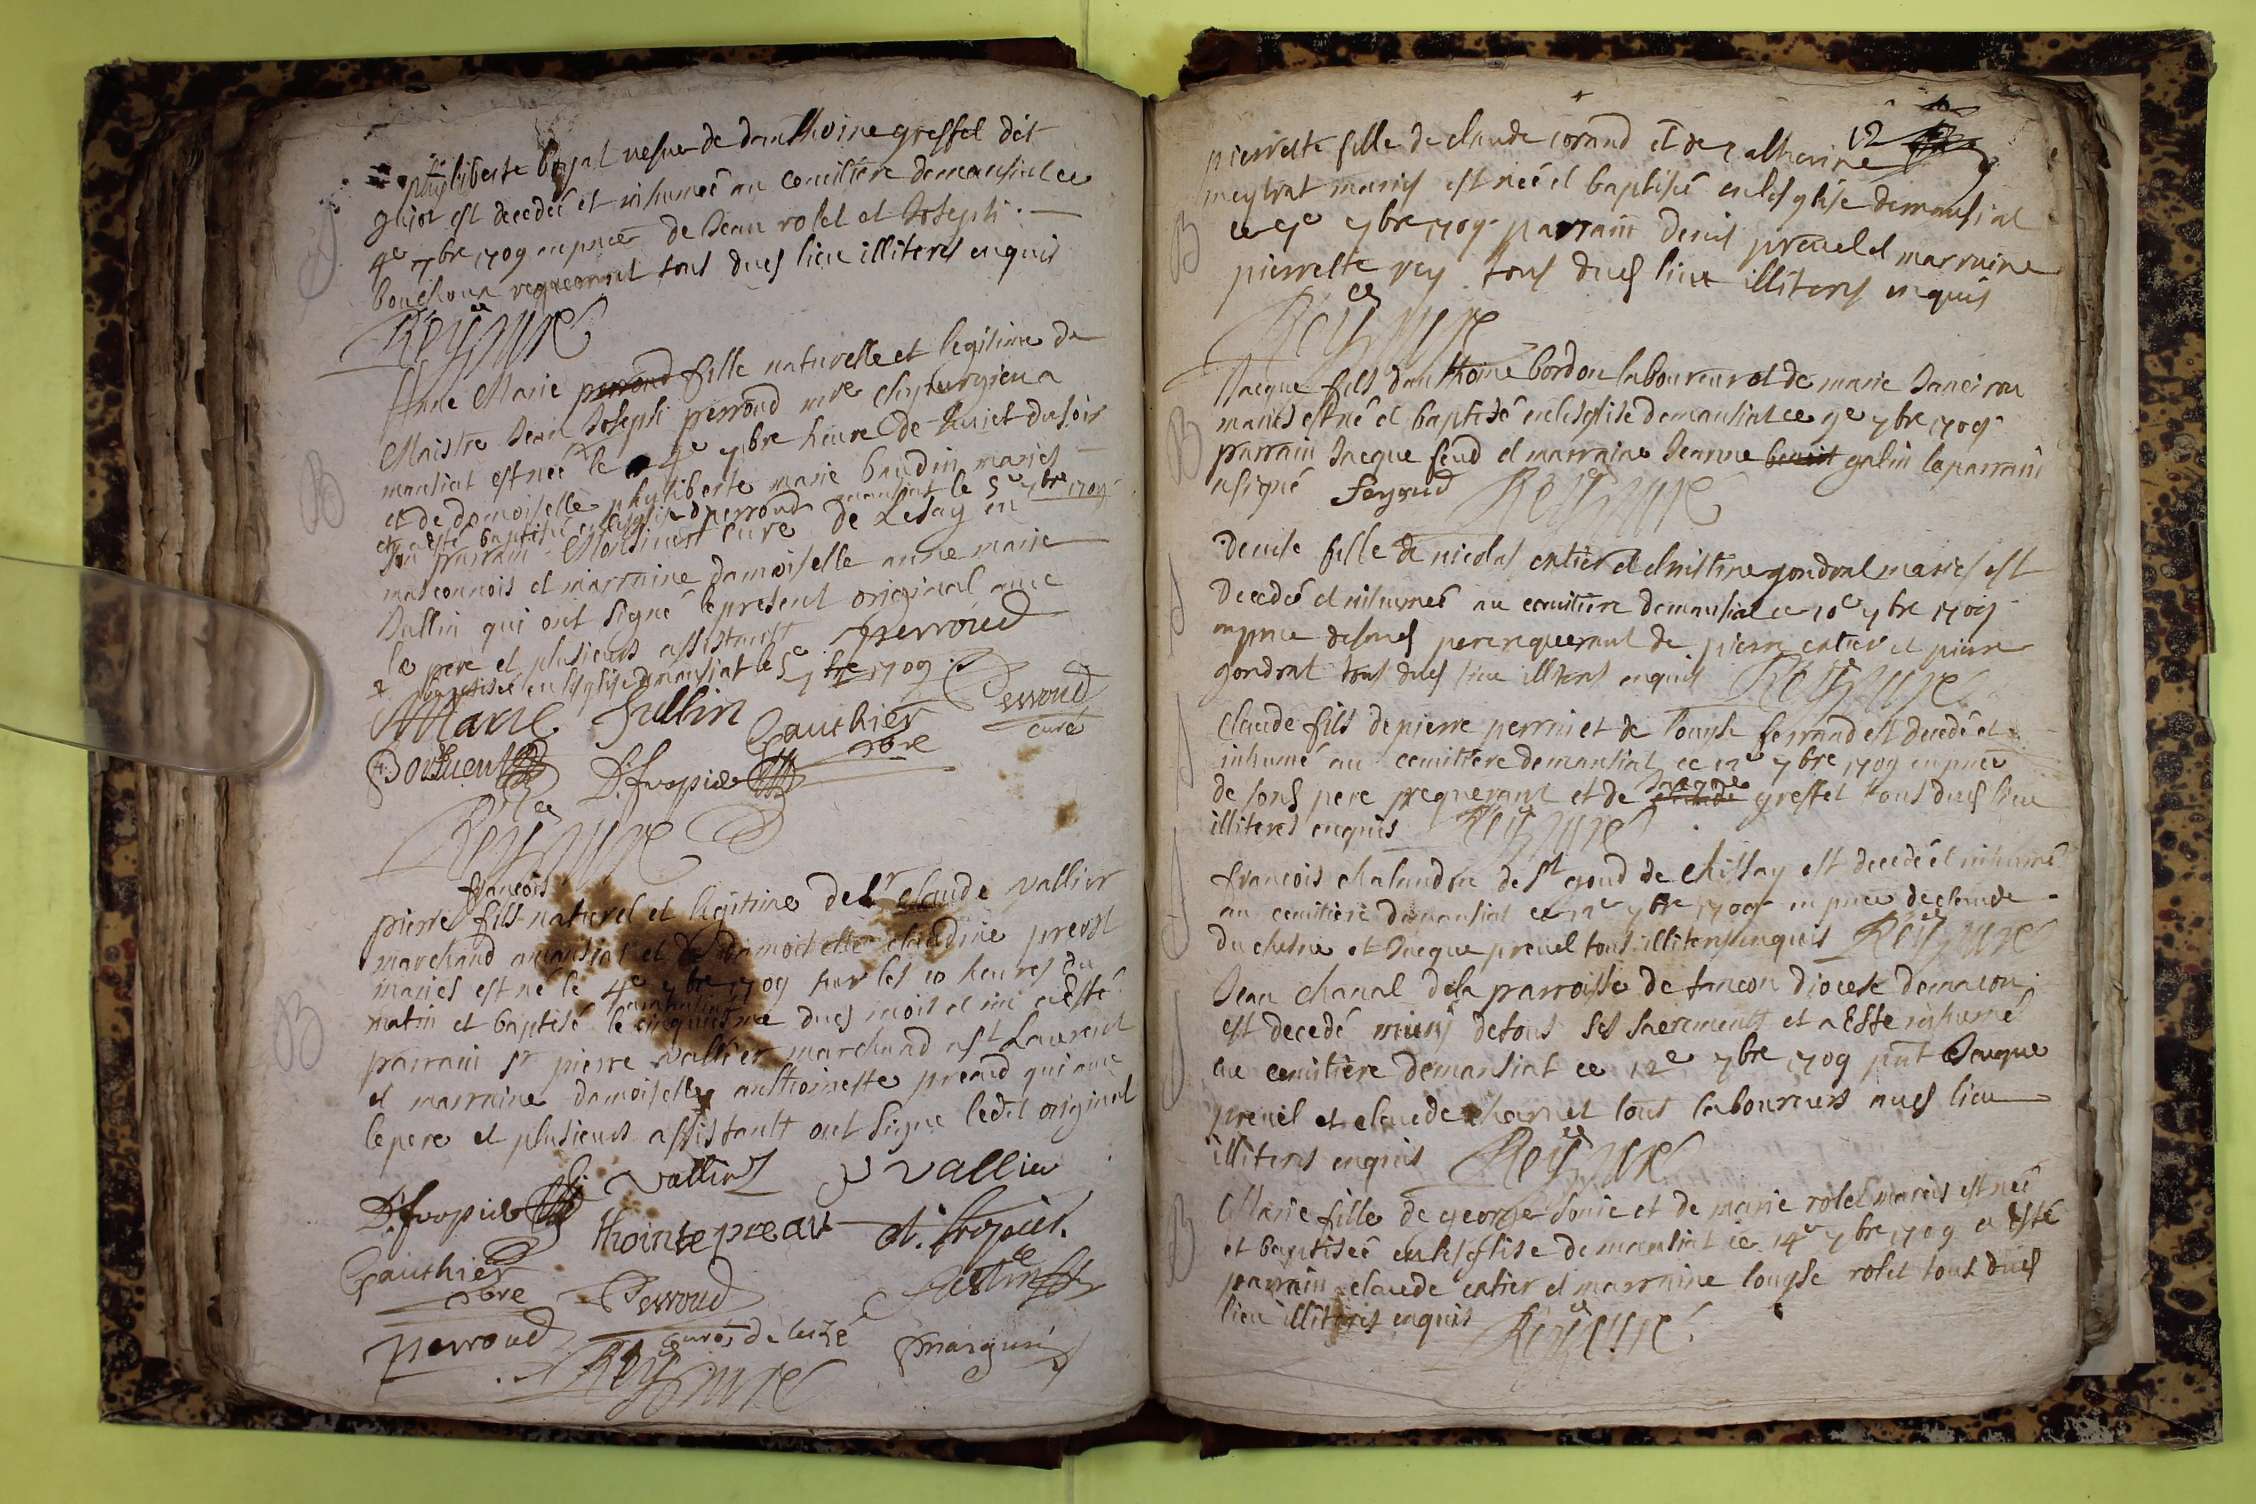 philiberte bojat vefue de danthoine greffet dit
gujot est decedeé et inhumeé au cemitiere demansiat ce
4e 7bre 1709 en pnce de Jean rolet et Joseph
bouchoux requerant tous dues lieu illiteres enquis
Reÿ cure
Anne Marie perroud fille naturelle et legitime de
Maistre Jean Joseph perroud mre chyrurgien a
mansiat est neé le 4e 7bre heure de huict du soir
et de damoiselle phyliberte marie baudin mariés
et a esté baptiseé en lesglise mansiat le 5e 7bre 1709
son parrain Messire perroud cure de Lesay en
masconnois et marraine damoiselle anne marie
Jullin qui ont signé le present original avec
le pere et plusieurs assistantt perroud
+ baptisée en lesglise de mansiat le 5e 7bre 1709
Marie Jullin Gauthier pbre Perroud curé
D. fropier
Reÿ cure
françois
pierre fils naturel et legitime de Sr claude vallier
marchand amansiat et de damoiselle claudine prevost
mariés est né le 4e 7bre 1709 sur les 10 heures du
matin et baptisé le cinquiesme dues mois et an a esté
parrain Sr pierre vallier marchand a St Laurent
et marraine damoiselle anthoinette preaud qui avec
le pere et plusieurs assistantt ont signe ledit original
D. fropier vallier vallier
thointe preau fropier
Gauthier pbre Perroud
perroud curé de luzé marguin
Reÿ cure
12
pierrette fille de claude morand et de catherine
meytrat mariés est neé et baptiseé en lesglise demansiat
ce 7e 7bre 1709 parrain denis prevel et marraine
pierrette rey tous dues lieu illiteres enquis
Reÿ cure
Jacque fils danthoine bordon laboureur et de marie Janeiron
mariés est né et baptisé en lesglise demansiat ce 9e 7bre 1709
parrain Jacque feud et marraine Jeanne benoit galin le parrain
a signé feyoud Reÿ cure
denise fille de nicolas entier et christine gondrat mariés est
decedeé et inhumeé au cemitiere demansiat ce 10e 7bre 1709
en pnce de sond pere requerant de pierre entier et pierre
gondrat tous dues lieu illiteres enquis Reÿ cure
Claude fils de pierre perrin et de louyse ferrand est decedé et
inhumé au cemitiere demansiat ce 12e 7bre 1709 en pnce
de sond pere requerant et de Jacque claude greffet tous dues lieu
illiteres enquis Reÿ cure
françois chalandre de St goud de chissay est decedé et inhumé
au cemitiere demansiat ce 12e 7bre 1709 en pnce de claude
duchesne et Jacque prevel tous illiteres enquis Reÿ cure
Jean chanal de la parroisse de fancon diocese demacon
est decedé muni de tous ses sacrementt et a Este inhumé
au cemitiere demansiat ce 12e 7bre 1709 pnt Jacque
prevel et claude charnet tous laboureurs aues lieu
illiteres enquis Reÿ cure
Marie fille de george Sonié et de marie rolet mariés est neé
et baptiseé en lesglise de mansiat ce 14e 7bre 1709 a Esté
parrain claude entier et marraine louyse rolet tous dues
lieu illiteres enquis Reÿ cure